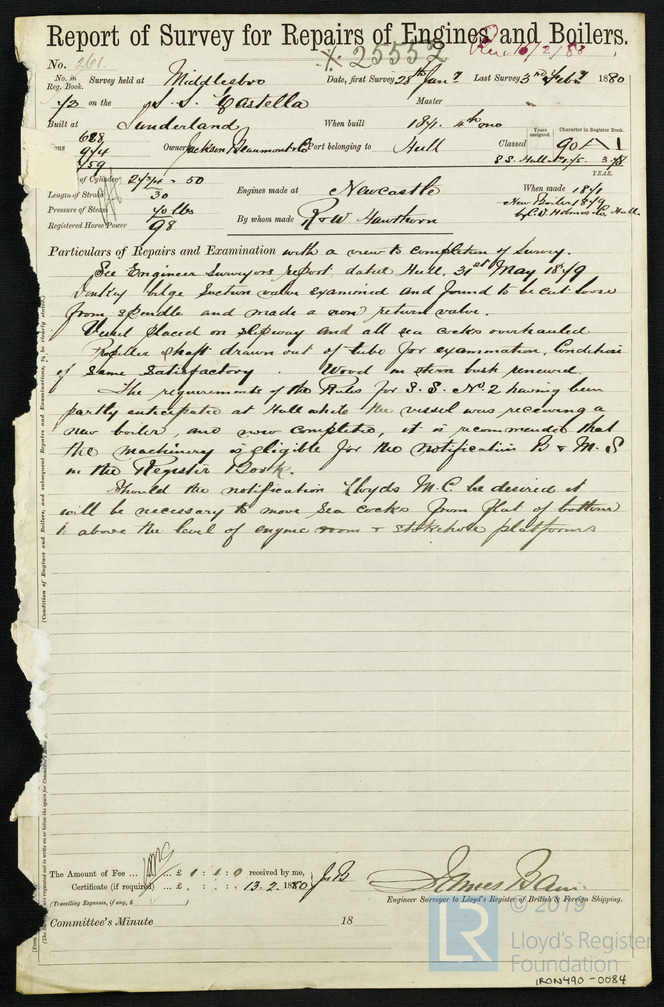 Report of Survey for Repairs of Engines and Boilers.
* 25552 Rec 16/2/80
No. 261
No. in Reg. Book. Survey held at Middlesbro Date, first Survey 28th Jany Last Survey 3rd Feby 1880
73 on the S. S. Castella Master
Built at Sunderland When built 1871. 4th mo
Years assigned. Character in Register Book.
Tons 688 Owners Jackson Beaumont & Co Port belonging to Hull Classed 90 A1
S S. Hull No 1/5 3.78
YEAR.
of Cylinder 27 3/4 - 50
Length of Stroke 30 Engines made at Newcastle When made 1871
Pressure of Steam 70 lbs New Boiler 1879
Registered Horse Power 98 By whom made R & W Hawthorn by C. D. Holmes & Co Hull.
Particulars of Repairs and Examination with a view to completion of Survey.
See Engineer Surveyors report dated Hull, 31st May 1879
Donkey bilge Suction valve examined and found to be cut loose
from spindle and made a non return valve.
Vessel placed on slipway and all sea cocks overhauled.
Propeller shaft drawn out of tube for examination, Condition
of same satisfactory. Wood in stern bush renewed.
The requirements of the Rules for S. S. No. 2 having been
partly anticipated at Hull while the vessel was receiving a
new boiler, and now completed, it is recommended that
the machinery is eligible for the notification B & M. S
in the Register Book.
Should the notification Lloyds M.C. be desired it
will be necessary to move sea cocks from flat of bottom
to above the level of engine room & stokehole platforms
(Condition of Engines and Boilers, and subsequent Repairs and Examinations, to be clearly stated.)
The Amount of Fee ... £ 1 : 1 : 0 received by me,
Certificate (if required) ... £ . : . : 13.2.1880
(Travelling Expenses, if any, £ )
James Bain.
Engineer Surveyor to Lloyd's Register of British & Foreign Shipping.
Committee's Minute 18
LR © 2019
Lloyd's Register
Foundation
IRON490-0084